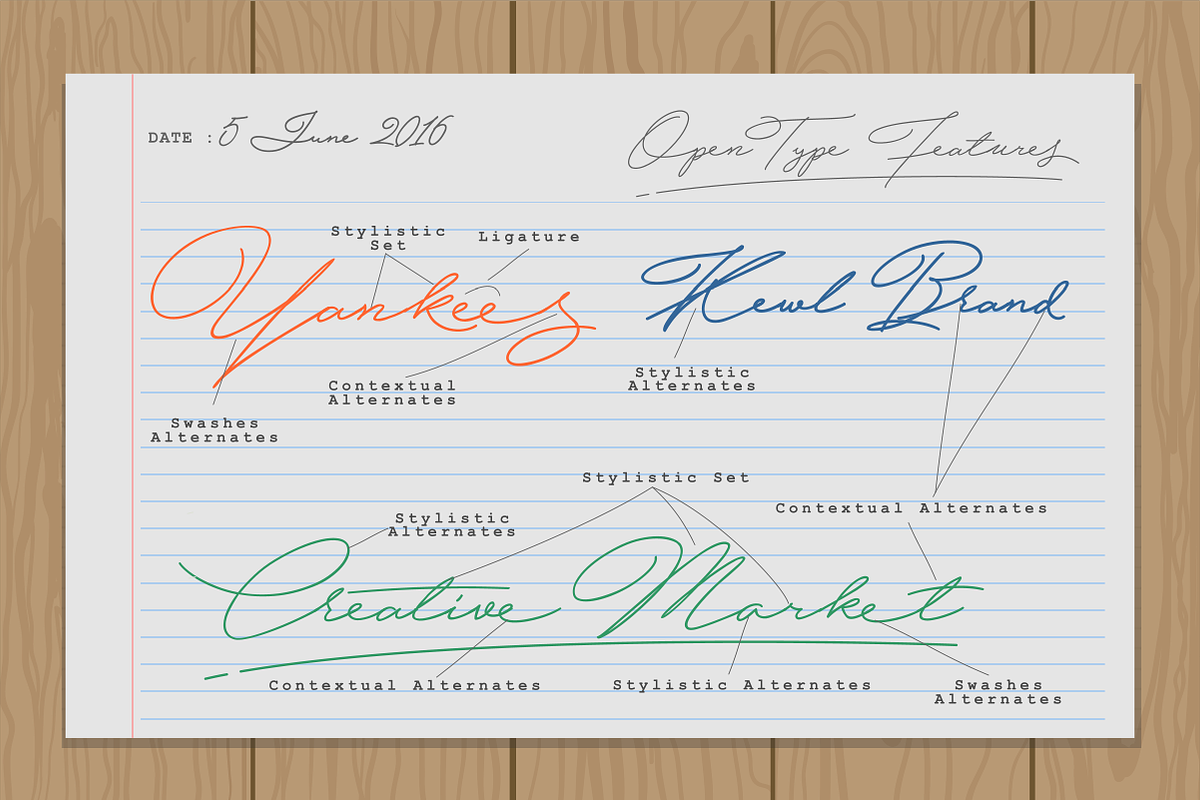 DATE : 5 June 2016
OpenType Features
Stylistic
Set
Ligature
Yankees
Kewl Brand
Contextual
Alternates
Stylistic
Alternates
Swashes
Alternates
Stylistic Set
Contextual Alternates
Stylistic
Alternates
Creative Market
Contextual Alternates
Stylistic Alternates
Swashes
Alternates